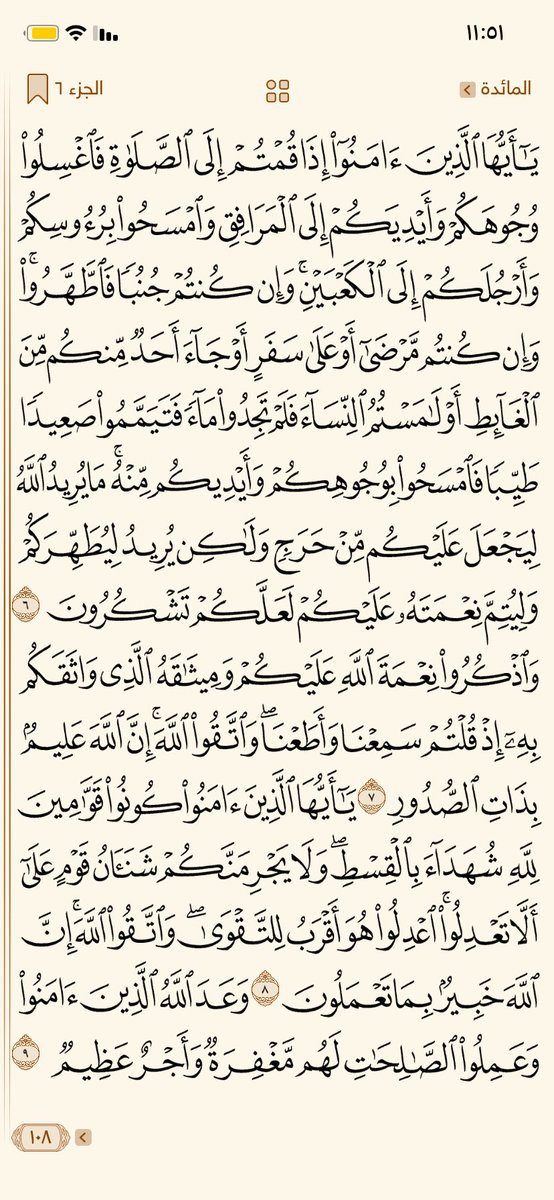 ١١:٥١
المائدة
الجزء ٦
يَٰٓأَيُّهَا ٱلَّذِينَ ءَامَنُوٓا۟ إِذَا قُمْتُمْ إِلَى ٱلصَّلَوٰةِ فَٱغْسِلُوا۟
وُجُوهَكُمْ وَأَيْدِيَكُمْ إِلَى ٱلْمَرَافِقِ وَٱمْسَحُوا۟ بِرُءُوسِكُمْ
وَأَرْجُلَكُمْ إِلَى ٱلْكَعْبَيْنِ ۚ وَإِن كُنتُمْ جُنُبًا فَٱطَّهَّرُوا۟ ۚ
وَإِن كُنتُم مَّرْضَىٰٓ أَوْ عَلَىٰ سَفَرٍ أَوْ جَآءَ أَحَدٌ مِّنكُم مِّنَ
ٱلْغَآئِطِ أَوْ لَٰمَسْتُمُ ٱلنِّسَآءَ فَلَمْ تَجِدُوا۟ مَآءً فَتَيَمَّمُوا۟ صَعِيدًا
طَيِّبًا فَٱمْسَحُوا۟ بِوُجُوهِكُمْ وَأَيْدِيكُم مِّنْهُ ۚ مَا يُرِيدُ ٱللَّهُ
لِيَجْعَلَ عَلَيْكُم مِّنْ حَرَجٍ وَلَٰكِن يُرِيدُ لِيُطَهِّرَكُمْ
وَلِيُتِمَّ نِعْمَتَهُۥ عَلَيْكُمْ لَعَلَّكُمْ تَشْكُرُونَ ٦
وَٱذْكُرُوا۟ نِعْمَةَ ٱللَّهِ عَلَيْكُمْ وَمِيثَٰقَهُ ٱلَّذِى وَاثَقَكُم
بِهِۦٓ إِذْ قُلْتُمْ سَمِعْنَا وَأَطَعْنَا ۖ وَٱتَّقُوا۟ ٱللَّهَ ۚ إِنَّ ٱللَّهَ عَلِيمٌۢ
بِذَاتِ ٱلصُّدُورِ ٧ يَٰٓأَيُّهَا ٱلَّذِينَ ءَامَنُوا۟ كُونُوا۟ قَوَّٰمِينَ
لِلَّهِ شُهَدَآءَ بِٱلْقِسْطِ ۖ وَلَا يَجْرِمَنَّكُمْ شَنَـَٔانُ قَوْمٍ عَلَىٰٓ
أَلَّا تَعْدِلُوا۟ ۚ ٱعْدِلُوا۟ هُوَ أَقْرَبُ لِلتَّقْوَىٰ ۖ وَٱتَّقُوا۟ ٱللَّهَ ۚ إِنَّ
ٱللَّهَ خَبِيرٌۢ بِمَا تَعْمَلُونَ ٨ وَعَدَ ٱللَّهُ ٱلَّذِينَ ءَامَنُوا۟
وَعَمِلُوا۟ ٱلصَّٰلِحَٰتِ ۙ لَهُم مَّغْفِرَةٌ وَأَجْرٌ عَظِيمٌ ٩
١٠٨